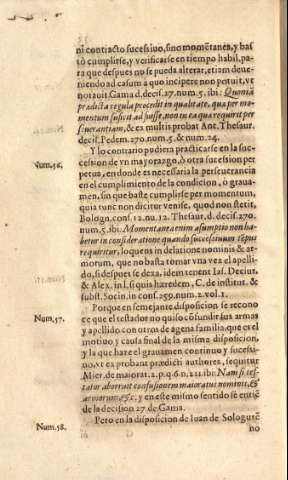 ni contracto sucessiuo, sino momẽtanea, y bas
tò cumplirse, y verificarse en tiempo habil, pa-
ra que despues no se pueda alterar, etiam deue-
niendo ad casum à quo incipere non potuit, vt
notauit Gama d. decis. 27. num. 5. ibi: Quoniã
prædicta regula procedit in qualitate, qua per mo-
mentum sufficit ad fuisse, non in ea qua requirit per
seuerantiam, & ex multis probat Ant. Thesaur.
decis. Pedem. 270. num. 5. & num. 24.
Y lo contrario pudiera practicarse en la suc-
Num. 56.
cession de vn mayorazgo, ò otra sucession per
petua, en donde es necessaria la perseuerancia
en el cumplimiento de la condicion, ò graua-
men, sin que baste cumplirse per momentum,
quia tunc non dicitur venisse, quod non stetit,
Bologn. conf. 12. nu. 12. Thesaur. d. decis. 270.
num. 5. ibi. Momentanea enim assumptio non ha-
betur in consideratione quando successiuum tẽpus
requiritur, loquens in delatione nominis & ar-
morum, que no basta tomar vna vez el apelli-
do, si despues se dexa, idem tenent Ias. Decius,
& Alex. in l. si quis hæredem, C. de institut. &
subst. Socin. in conf. 259. num. 2. vol. 1.
Num. 57.
Porque en semejante disposicion se recono
ce que el testador no quiso cõfundir sus armas
y apellido con otros de agena familia, que es el
motiuo y causa final de la misma disposicion,
y la que haze el grauamen continuo y sucessi-
uo, vt ex probant prædicti authores, sequitur
Mier. de maiorat. 2. p. q. 6. n. 211. ibi: Nam si tes-
tator aborruit confusionem maioratus nominis, &
armorum &c. y en este mismo sentido se entiẽ
de la decision 27 de Gama.
Num. 58.
Pero en la disposicion de Iuan de Sologurẽ
no